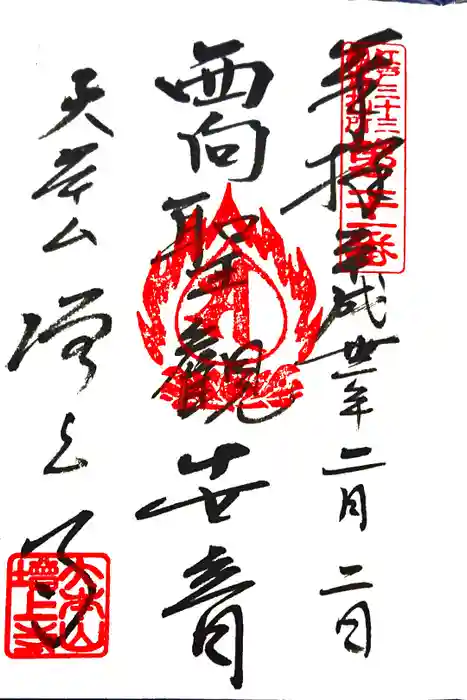 奉拝 平成丗一年二月二日
西向聖觀世音
大本山 増上寺
第二十一番
大本山
増上寺